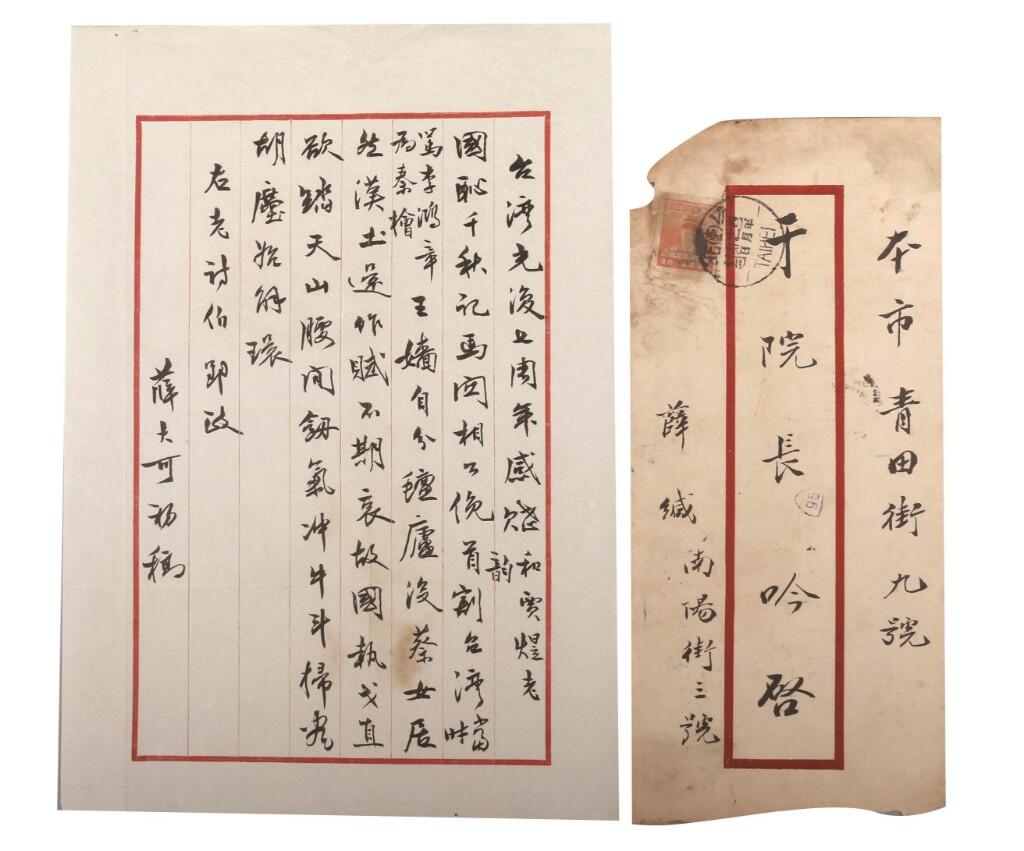 台湾光復七周年感賦 和賈煜老韵
國恥千秋記馬関相公俛首割台湾 當時
罵李鴻章為秦檜 王嬙自分氊廬沒蔡女居
然漢土還作賦不期哀故國執戈直
欲踏天山腰间劔氣冲牛斗掃尽
胡塵始解環
右老詩伯郢政
薛大可初稿
本市青田街九號
于院長吟啓
薛緘 南陽街三號
TAIHEI
95